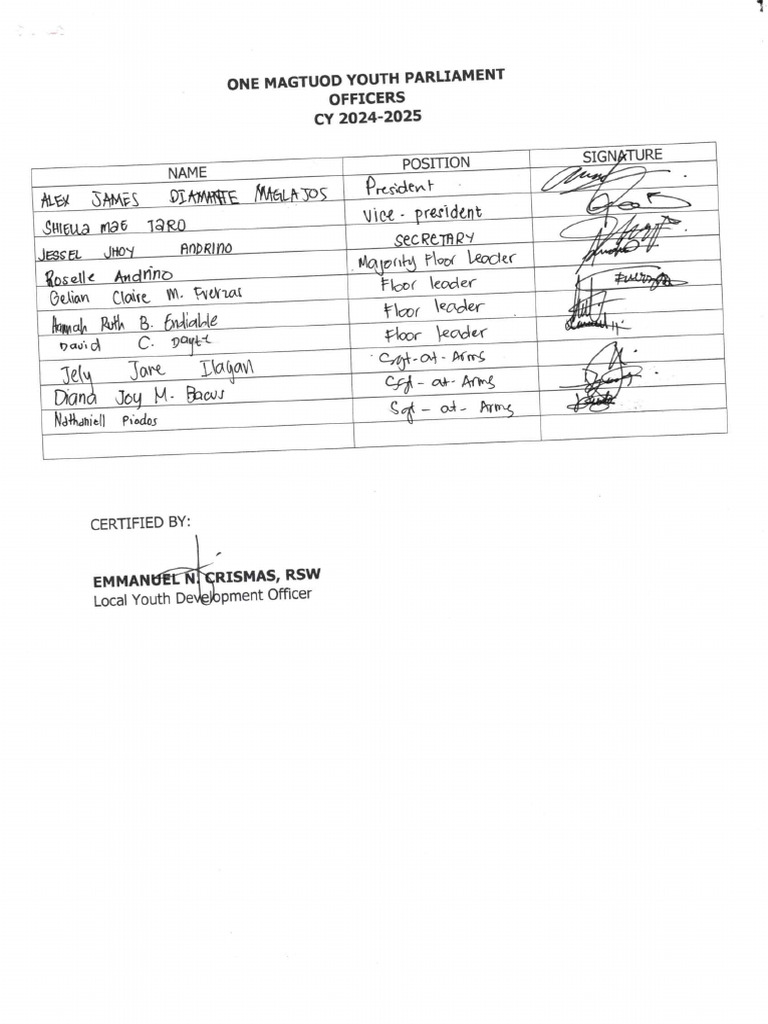 ONE MAGTUOD YOUTH PARLIAMENT
OFFICERS
CY 2024-2025
NAME POSITION SIGNATURE
ALEX JAMES DIAMANTE MAGLAJOS President
SHIELLA MAE TARO Vice - president
JESSEL JHOY ANDRINO SECRETARY
Roselle Andrino Majority Floor Leader
Gelian Claire M. Fuerzas Floor leader
Hannah Ruth B. Endiable Floor leader
David C. Floor leader
Jely Jane Ilagan Sgt-at-Arms
Diana Joy M. Bacus Sgt-at-Arms
Nathaniell Piodos Sgt-at-Arms
CERTIFIED BY:
EMMANUEL N. CRISMAS, RSW
Local Youth Development Officer